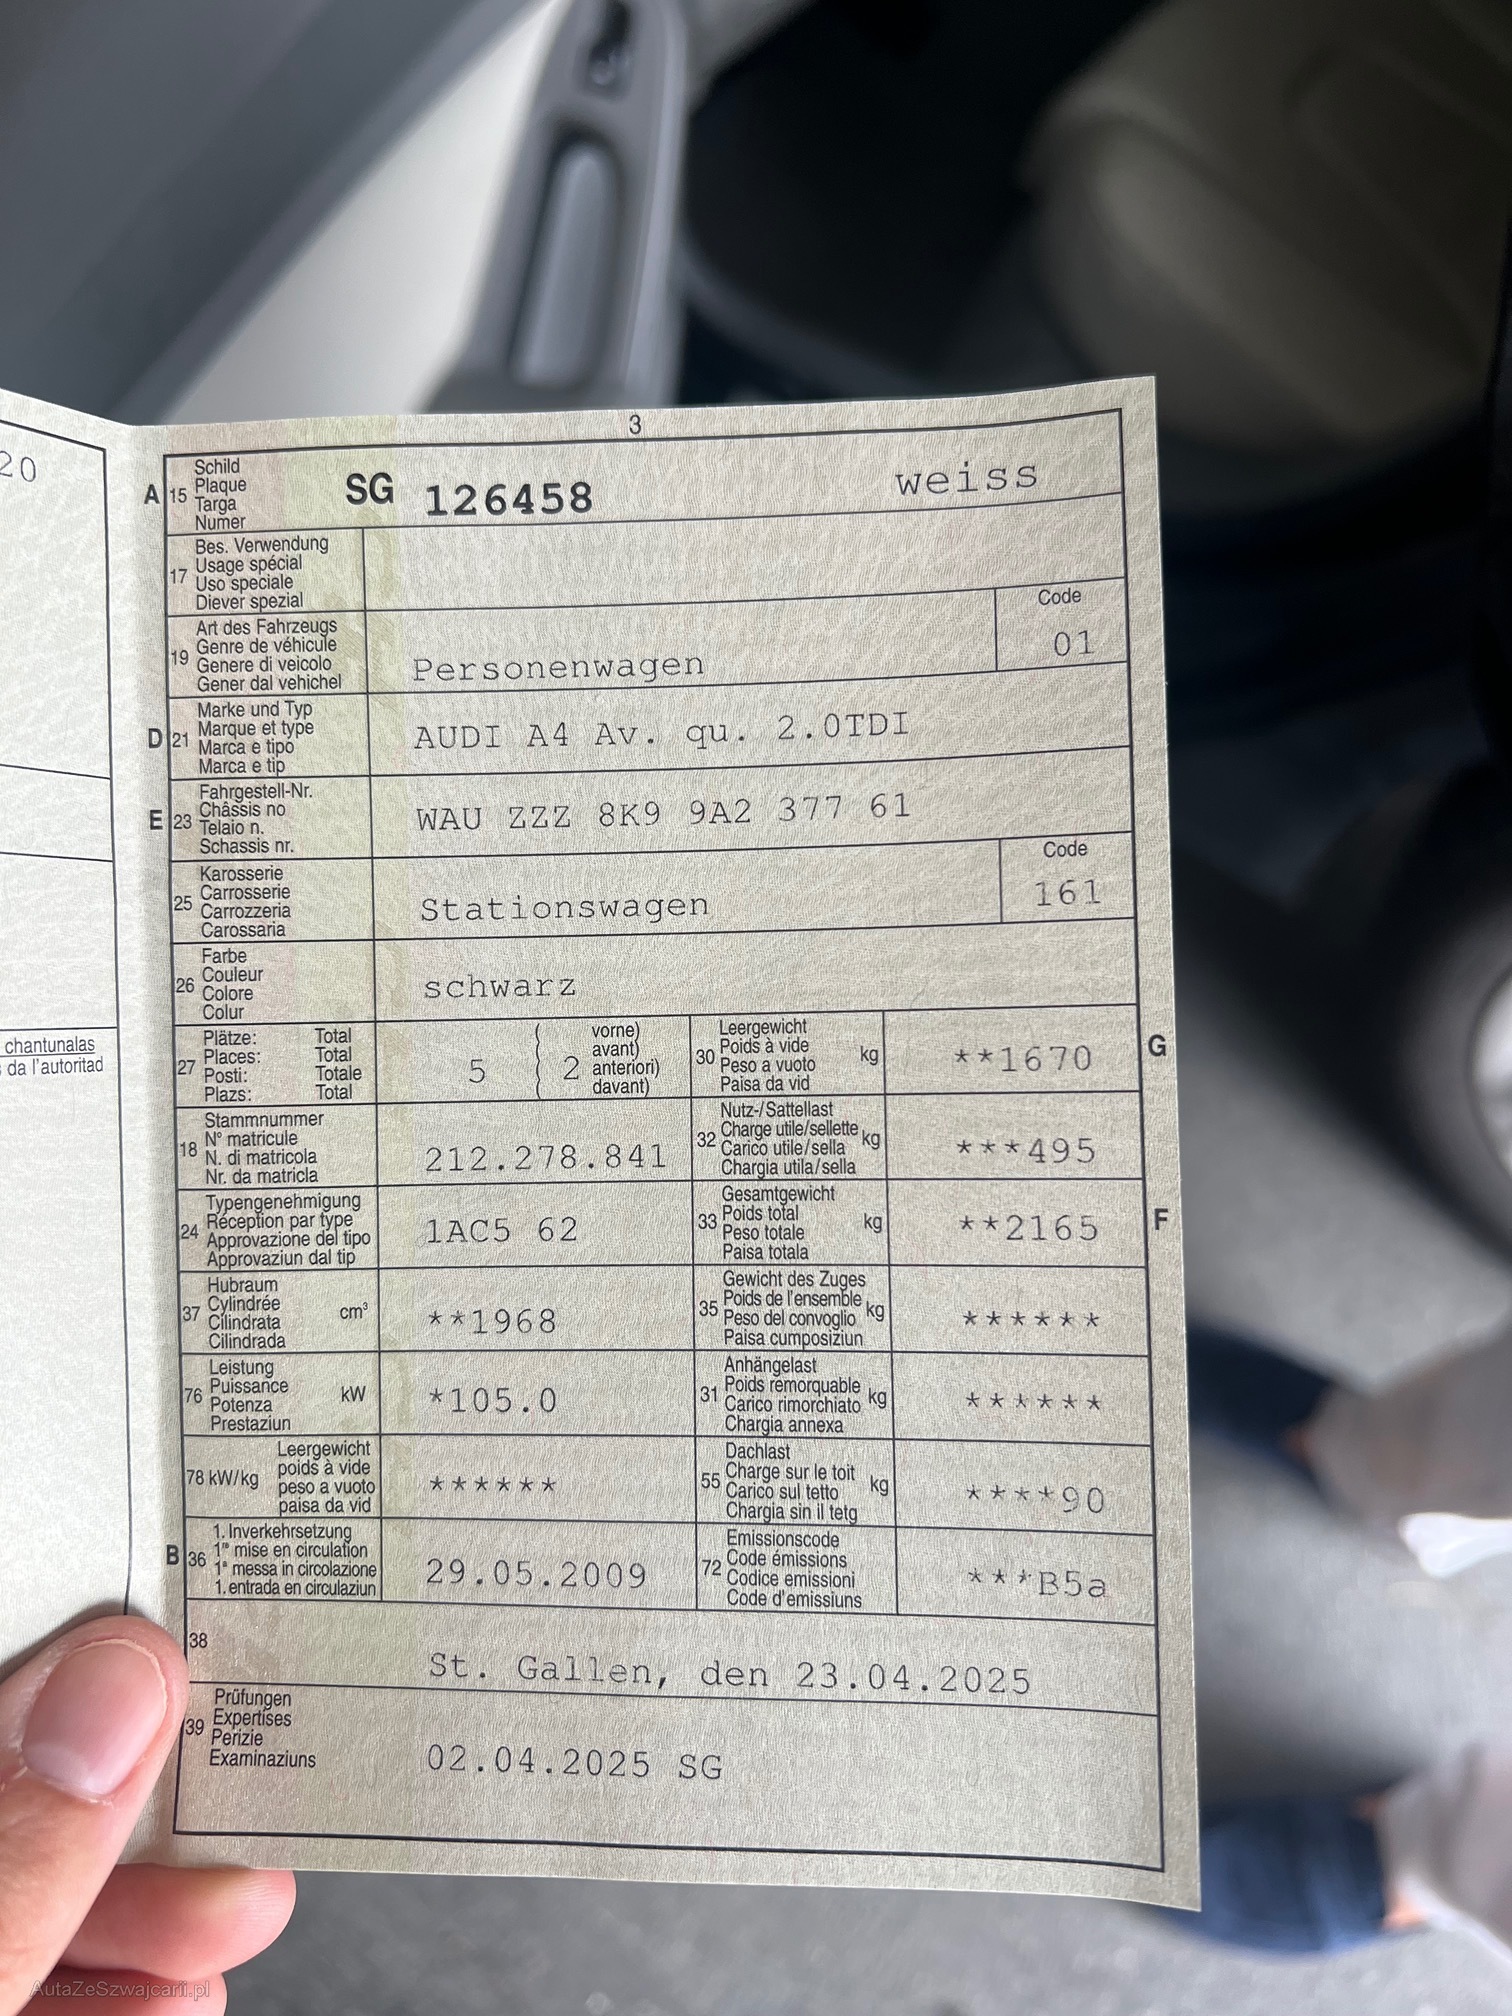 20
chantunalas
da l'autoritad
3
A 15 Schild
Plaque
Targa
Numer
SG 126458 weiss
17 Bes. Verwendung
Usage spécial
Uso speciale
Diever spezial
19 Art des Fahrzeugs
Genre de véhicule
Genere di veicolo
Gener dal vehichel
Personenwagen
Code
01
D 21 Marke und Typ
Marque et type
Marca e tipo
Marca e tip
AUDI A4 Av. qu. 2.0TDI
E 23 Fahrgestell-Nr.
Châssis no
Telaio n.
Schassis nr.
WAU ZZZ 8K9 9A2 377 61
25 Karosserie
Carrosserie
Carrozzeria
Carossaria
Stationswagen
Code
161
26 Farbe
Couleur
Colore
Colur
schwarz
27 Plätze: Total
Places: Total
Posti: Totale
Plazs: Total
5 ( 2 vorne)
avant)
anteriori)
davant)
30 Leergewicht
Poids à vide
Peso a vuoto
Paisa da vid
kg **1670 G
18 Stammnummer
N° matricule
N. di matricola
Nr. da matricla
212.278.841
32 Nutz-/Sattellast
Charge utile/sellette
Carico utile/sella
Chargia utila/sella
kg ***495
24 Typengenehmigung
Réception par type
Approvazione del tipo
Approvaziun dal tip
1AC5 62
33 Gesamtgewicht
Poids total
Peso totale
Paisa totala
kg **2165 F
37 Hubraum
Cylindrée
Cilindrata
Cilindrada
cm³ **1968
35 Gewicht des Zuges
Poids de l'ensemble
Peso del convoglio
Paisa cumposiziun
kg ******
76 Leistung
Puissance
Potenza
Prestaziun
kW *105.0
31 Anhängelast
Poids remorquable
Carico rimorchiato
Chargia annexa
kg ******
78 kW/kg Leergewicht
poids à vide
peso a vuoto
paisa da vid
******
55 Dachlast
Charge sur le toit
Carico sul tetto
Chargia sin il tetg
kg ****90
B 36 1. Inverkehrsetzung
1re mise en circulation
1a messa in circolazione
1. entrada en circulaziun
29.05.2009
72 Emissionscode
Code émissions
Codice emissioni
Code d'emissiuns
***B5a
38
St. Gallen, den 23.04.2025
39 Prüfungen
Expertises
Perizie
Examinaziuns
02.04.2025 SG
AutaZeSzwajcarii.pl